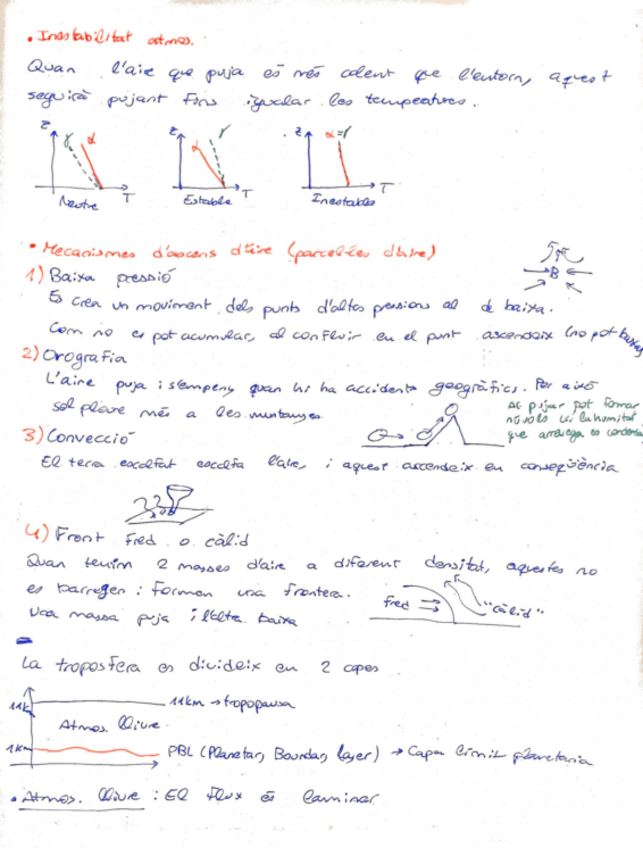 • Inestabilitat atmos.
Quan l'aire que puja és més calent que l'entorn, aquest
seguirà pujant fins igualar les temperatures.
z γ α T Neutre
z α γ T Estable
z α=γ T Inestable
• Mecanismes d'ascens d'aire (parcel·les d'aire)
1) Baixa pressió
B
Es crea un moviment dels punts d'altes pressions al de baixa.
Com no es pot acumular, al confluir en el punt ascendeix (no pot baixar)
2) Orografia
L'aire puja i s'empeny quan hi ha accidents geogràfics. Per això
sol ploure més a les muntanyes
Al pujar pot formar
núvols si la humitat
que arrossega es condensa
3) Convecció
El terra escalfat escalfa l'aire, i aquest ascendeix en conseqüència
4) Front fred o càlid
Quan tenim 2 masses d'aire a diferent densitat, aquestes no
es barregen i formen una frontera.
Una massa puja i l'altra baixa
fred "càlid"
La troposfera es divideix en 2 capes
11k 11km → tropopausa
Atmos. lliure
1k PBL (Planetary Boundary layer) → Capa límit planetaria
• Atmos. lliure : El flux és laminar